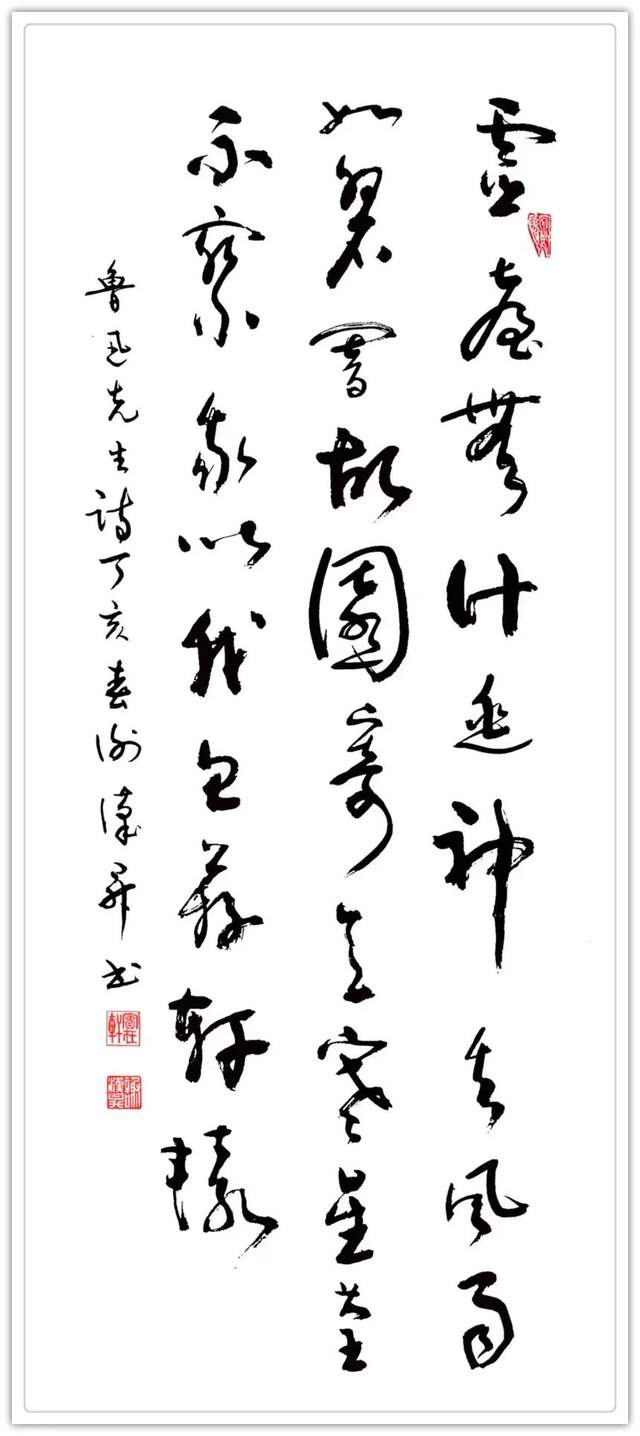 靈臺無計逃神矢風雨
如磐闇故園寄意寒星荃
不察我以我血薦軒轅
魯迅先生詩丁亥春谢漢昇书